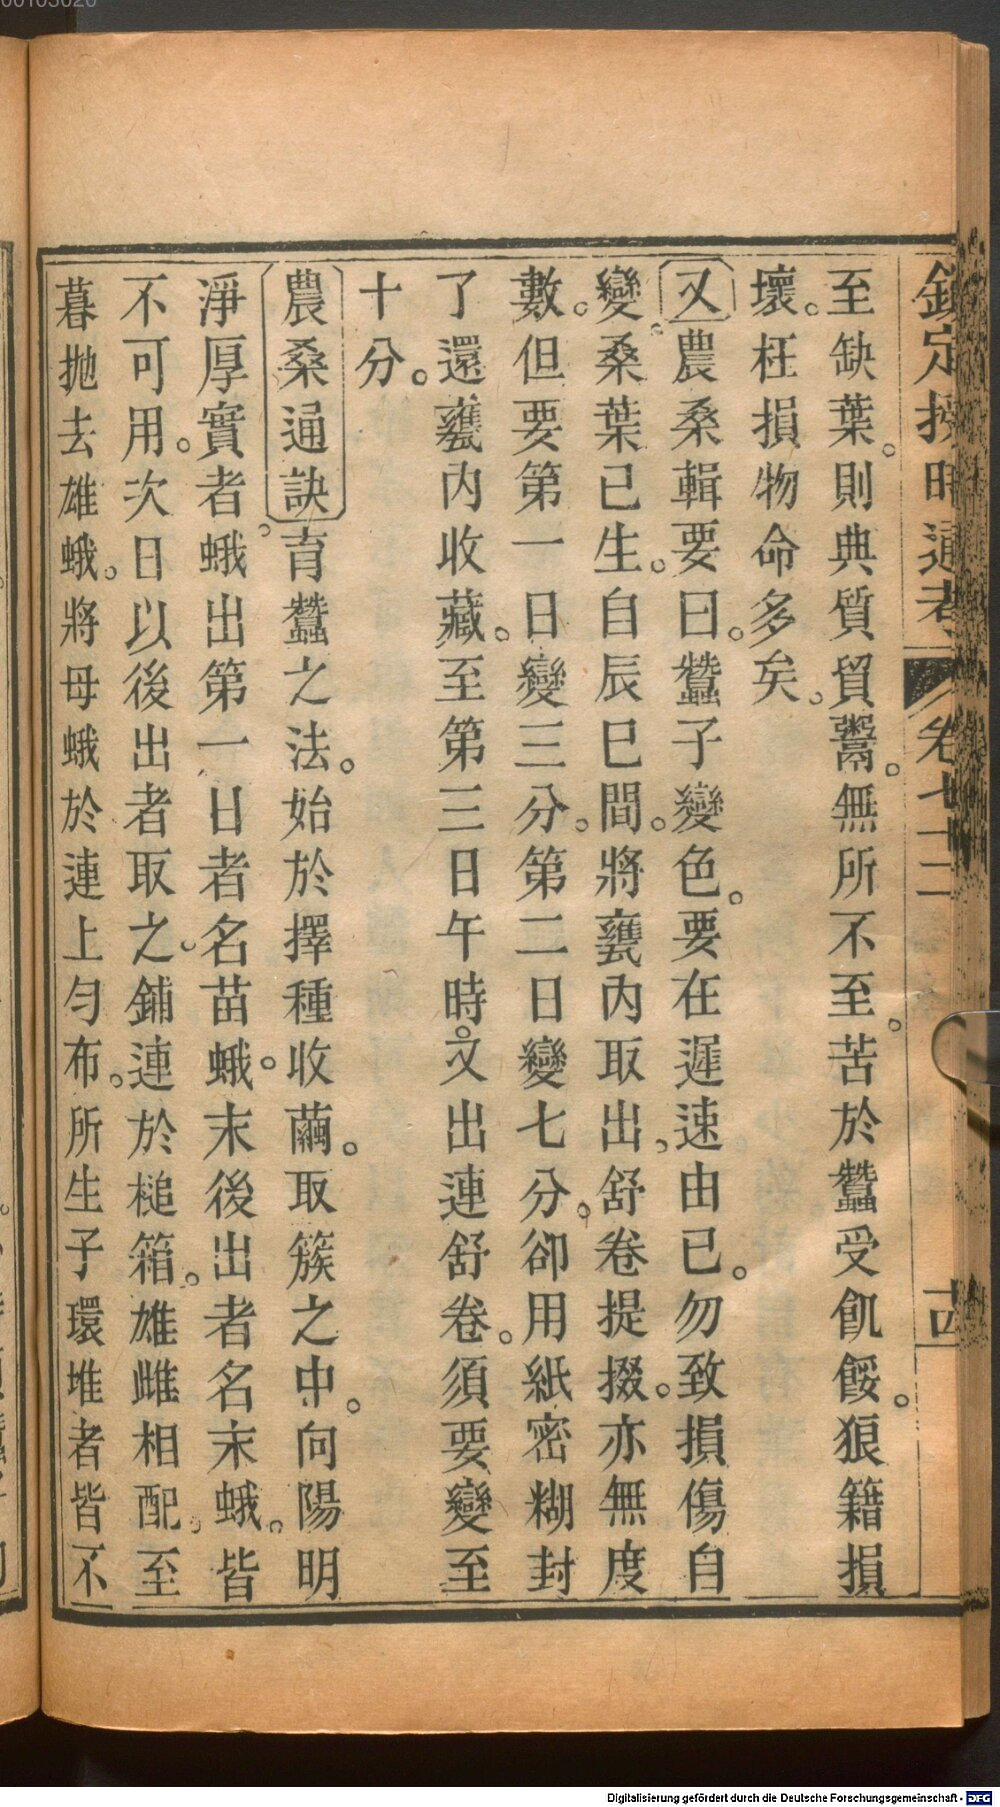 欽定授時通考 卷七十二 十四
至缺葉。則典質貿鬻。無所不至。苦於蠶受飢餒。狼籍損
壞。枉損物命多矣。
又農桑輯要曰。蠶子變色。要在遲速由已。勿致損傷自
變。桑葉已生。自辰巳間。將甕內取出。舒卷提掇。亦無度
數。但要第一日變三分。第二日變七分。卻用紙密糊封
了還甕內收藏。至第三日午時。又出連舒卷。須要變至
十分。
農桑通訣育蠶之法。始於擇種收繭。取簇之中。向陽明
淨厚實者。蛾出第一日者名苗蛾。末後出者名末蛾。皆
不可用。次日以後出者取之。鋪連於槌箔。雄雌相配。至
暮拋去雄蛾。將母蛾於連上勻布。所生子環堆者皆不
Digitalisierung gefördert durch die Deutsche Forschungsgemeinschaft - DFG